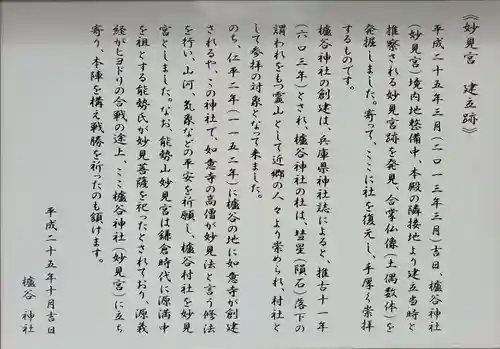 《妙見宮　建立跡》
平成二十五年三月(二〇一三年三月)吉日、櫨谷神社
(妙見宮)境内地整備中、本殿の隣接地より建立当時と
推察される妙見宮跡を発見、合掌仏像(土偶数体)を
発掘しました。寄って、ここに社を復元し、手厚く崇拝
するものです。
櫨谷神社の創建は、兵庫県神社誌によると、推古十一年
(六〇三年)とされ、櫨谷神社の杜は、彗星(隕石)落下の
謂われをもつ霊山として近郷の人々より崇められ、村社と
して参拝の対象となって来ました。
のち、仁平二年(一一五二年)に櫨谷の地に如意寺が創建
されるや、この神社で、如意寺の高僧が妙見法と言う修法
を行い、山河、気象などの平安を祈願し、櫨谷村社を妙見
宮としました。なお、能勢山妙見宮は鎌倉時代に源満中
を祖とする能勢氏が妙見菩薩を祀ったとされており、源義
経がヒヨドリの合戦の途上、ここ櫨谷神社(妙見宮)に立ち
寄り、本陣を構え戦勝を祈ったのも頷けます。
平成二十五年十月吉日
櫨谷　神社